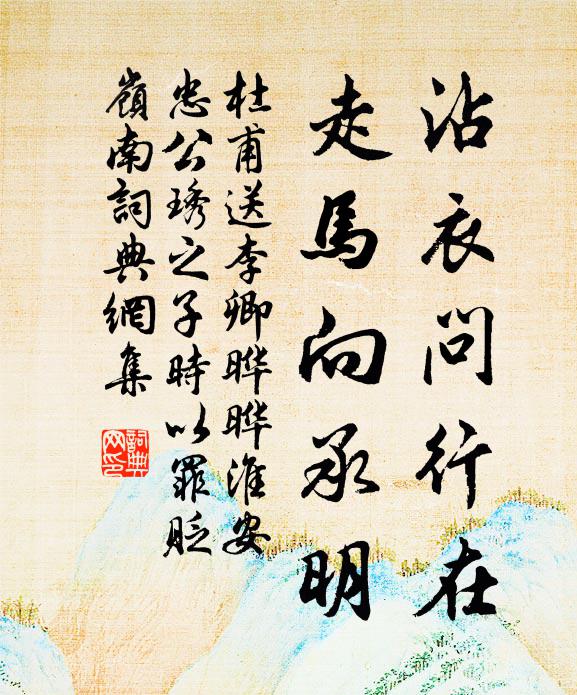 沾衣問行在
走馬向承明
杜甫送李卿曄曄淮安
忠公琇之子時以罪貶
嶺南詞典網集
詞典
网印